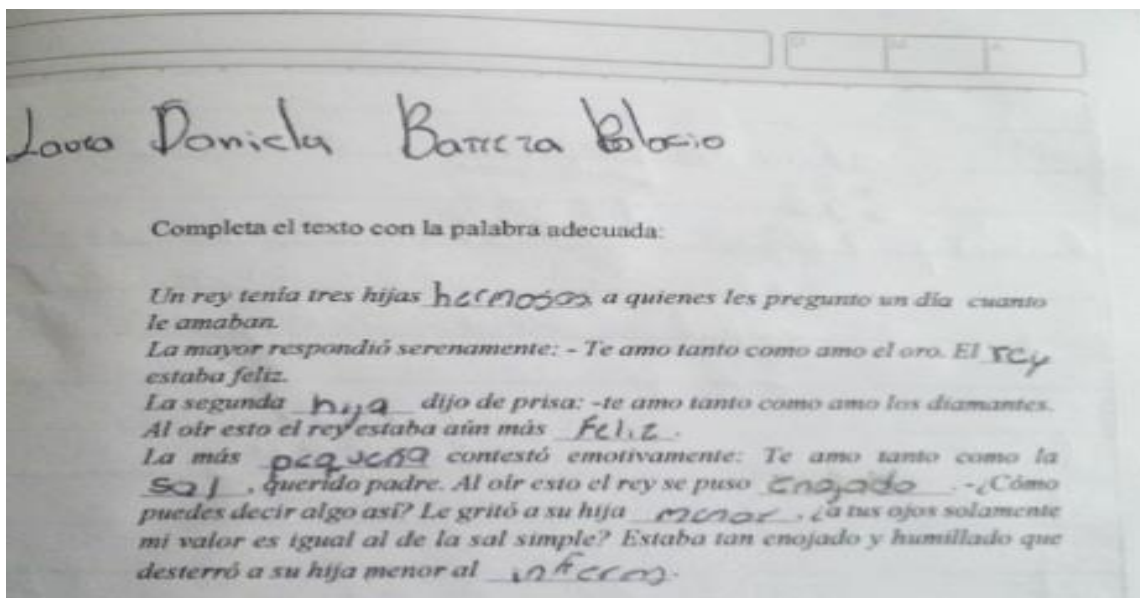 Laura Daniela Barrera Palacio
Completa el texto con la palabra adecuada:
Un rey tenía tres hijas hermosas a quienes les pregunto un día cuanto
le amaban.
La mayor respondió serenamente: - Te amo tanto como amo el oro. El rey
estaba feliz.
La segunda hija dijo de prisa: -te amo tanto como amo los diamantes.
Al oir esto el rey estaba aún más feliz.
La más pequeña contestó emotivamente: Te amo tanto como la
sal, querido padre. Al oir esto el rey se puso enojado. -¿Cómo
puedes decir algo así? Le gritó a su hija menor. ¿a tus ojos solamente
mi valor es igual al de la sal simple? Estaba tan enojado y humillado que
desterró a su hija menor al